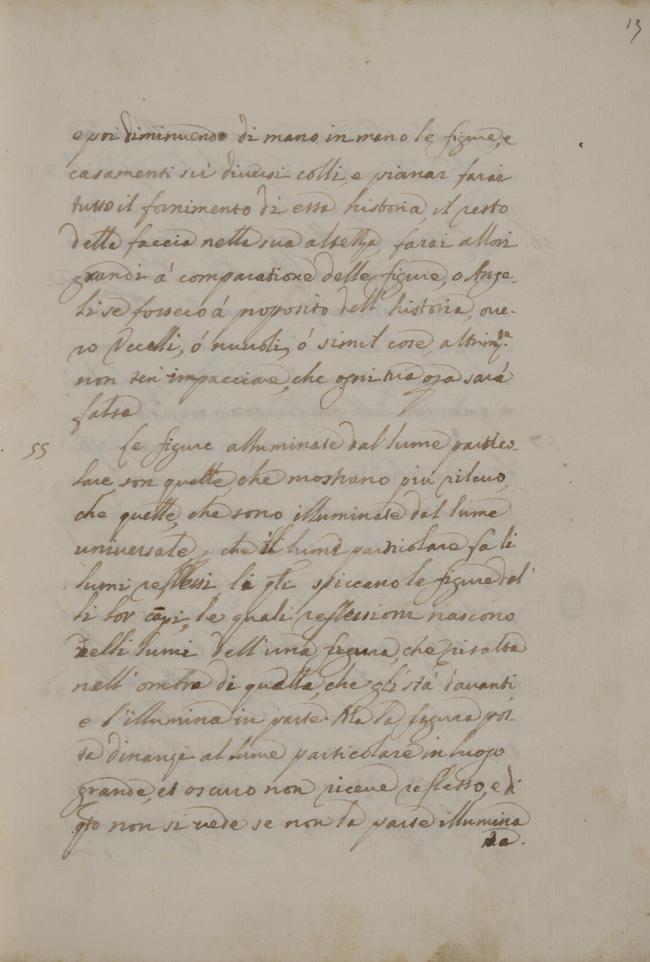 13
e poi diminuendo di mano in mano le figure, e
casamenti sù diversi colli, e pianar farai
tutto il fornimento di essa historia, il resto
della faccia nella sua altezza, farai alberi
grandi á comparatione delle figure, o Ange-
li se fossero á proposito dell'historia, ove-
ro Vccelli, ó nuvoli, ó simil cose, altrim.te
non ten' impacciare, che ogni tua opa sará
falsa
55 Le figure alluminate dal lume partico-
lare son quelle, che mostrano piú rilevo,
che quelle, che sono illuminate dal lume
universale, che il lumi particolare fa li
lumi reflessi, li qli spiccano le figure dal
li lor capi, le quali reflessioni nascono
nelli lumi dell'una figura, che risalta
nell'ombra di quella, che gli stá davanti,
e l'illumina in parte. Ma la figura pos-
ta dinanzi al lume particolare in luogo
grande, et oscuro non riceve reflesso, e di
qto non si vede se non la parte illumina
ta.